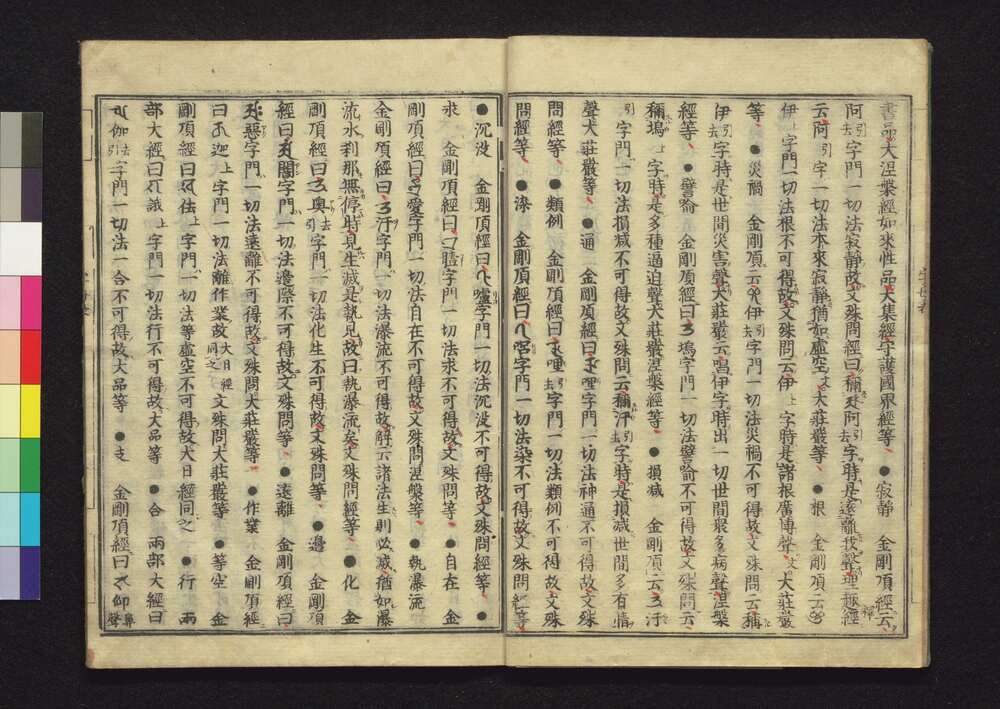 書品大涅槃經如來性品大集經守護國界經等●寂靜 金剛頂經云
阿引去字門一切法寂靜故文殊問經曰稱阿引去字時是遠離我聲理趣經
云阿引字一切法本來寂靜猶如虛空文大莊嚴等●根 金剛頂云
伊上字門一切法根不可得故文殊問云伊上字時是諸根廣博聲文大莊嚴
等●災禍 金剛頂云伊引去字門一切法災禍不可得故文殊問云稱
伊引去字時是世間災害聲大莊嚴云唱伊字時出一切世間衆多病聲涅槃
經等●譬喩 金剛頂經曰塢字門一切法譬喩不可得故文殊問云
稱塢上字時是多種逼迫聲大莊嚴涅槃經等●損減 金剛頂云汙
引字門一切法損減不可得故文殊問云稱汙引字時是損減世間多有情
聲大莊嚴等●通 金剛頂經曰哩字門一切法神通不可得故文殊
問經等●類例 金剛頂經曰哩引去字門一切法類例不可得故文殊
問經等●染 金剛頂經曰字門一切法染不可得故文殊問經等
●沉沒 金剛頂經曰嚧字門一切法沉沒不可得故文殊問經等●
求 金剛頂經曰曀字門一切法求不可得故文殊問等●自在 金
剛頂經曰愛字門一切法自在不可得故文殊問涅槃等●執瀑流
金剛頂經曰汙字門一切法瀑流不可得故解云諸法生則必滅猶如瀑
流水刹那無停時見生滅是執見故曰執瀑流矣文殊問經等●化 金
剛頂經曰奧去引字門一切法化生不可得故文殊問等●邊 金剛頂
經曰闇字門一切法邊際不可得故文殊問等●遠離 金剛頂經曰
惡字門一切法遠離不可得故文殊問大莊嚴等●作業 金剛頂經
曰迦上字門一切法離作業故大日經同之文殊問大莊嚴等●等空 金
剛頂經曰佉上字門一切法等虛空不可得故大日經同之●行 兩
部大經曰誐上字門一切法行不可得故大品等●合 兩部大經曰
伽去引字門一切法一合不可得故大品等●支 金剛頂經曰仰鼻聲